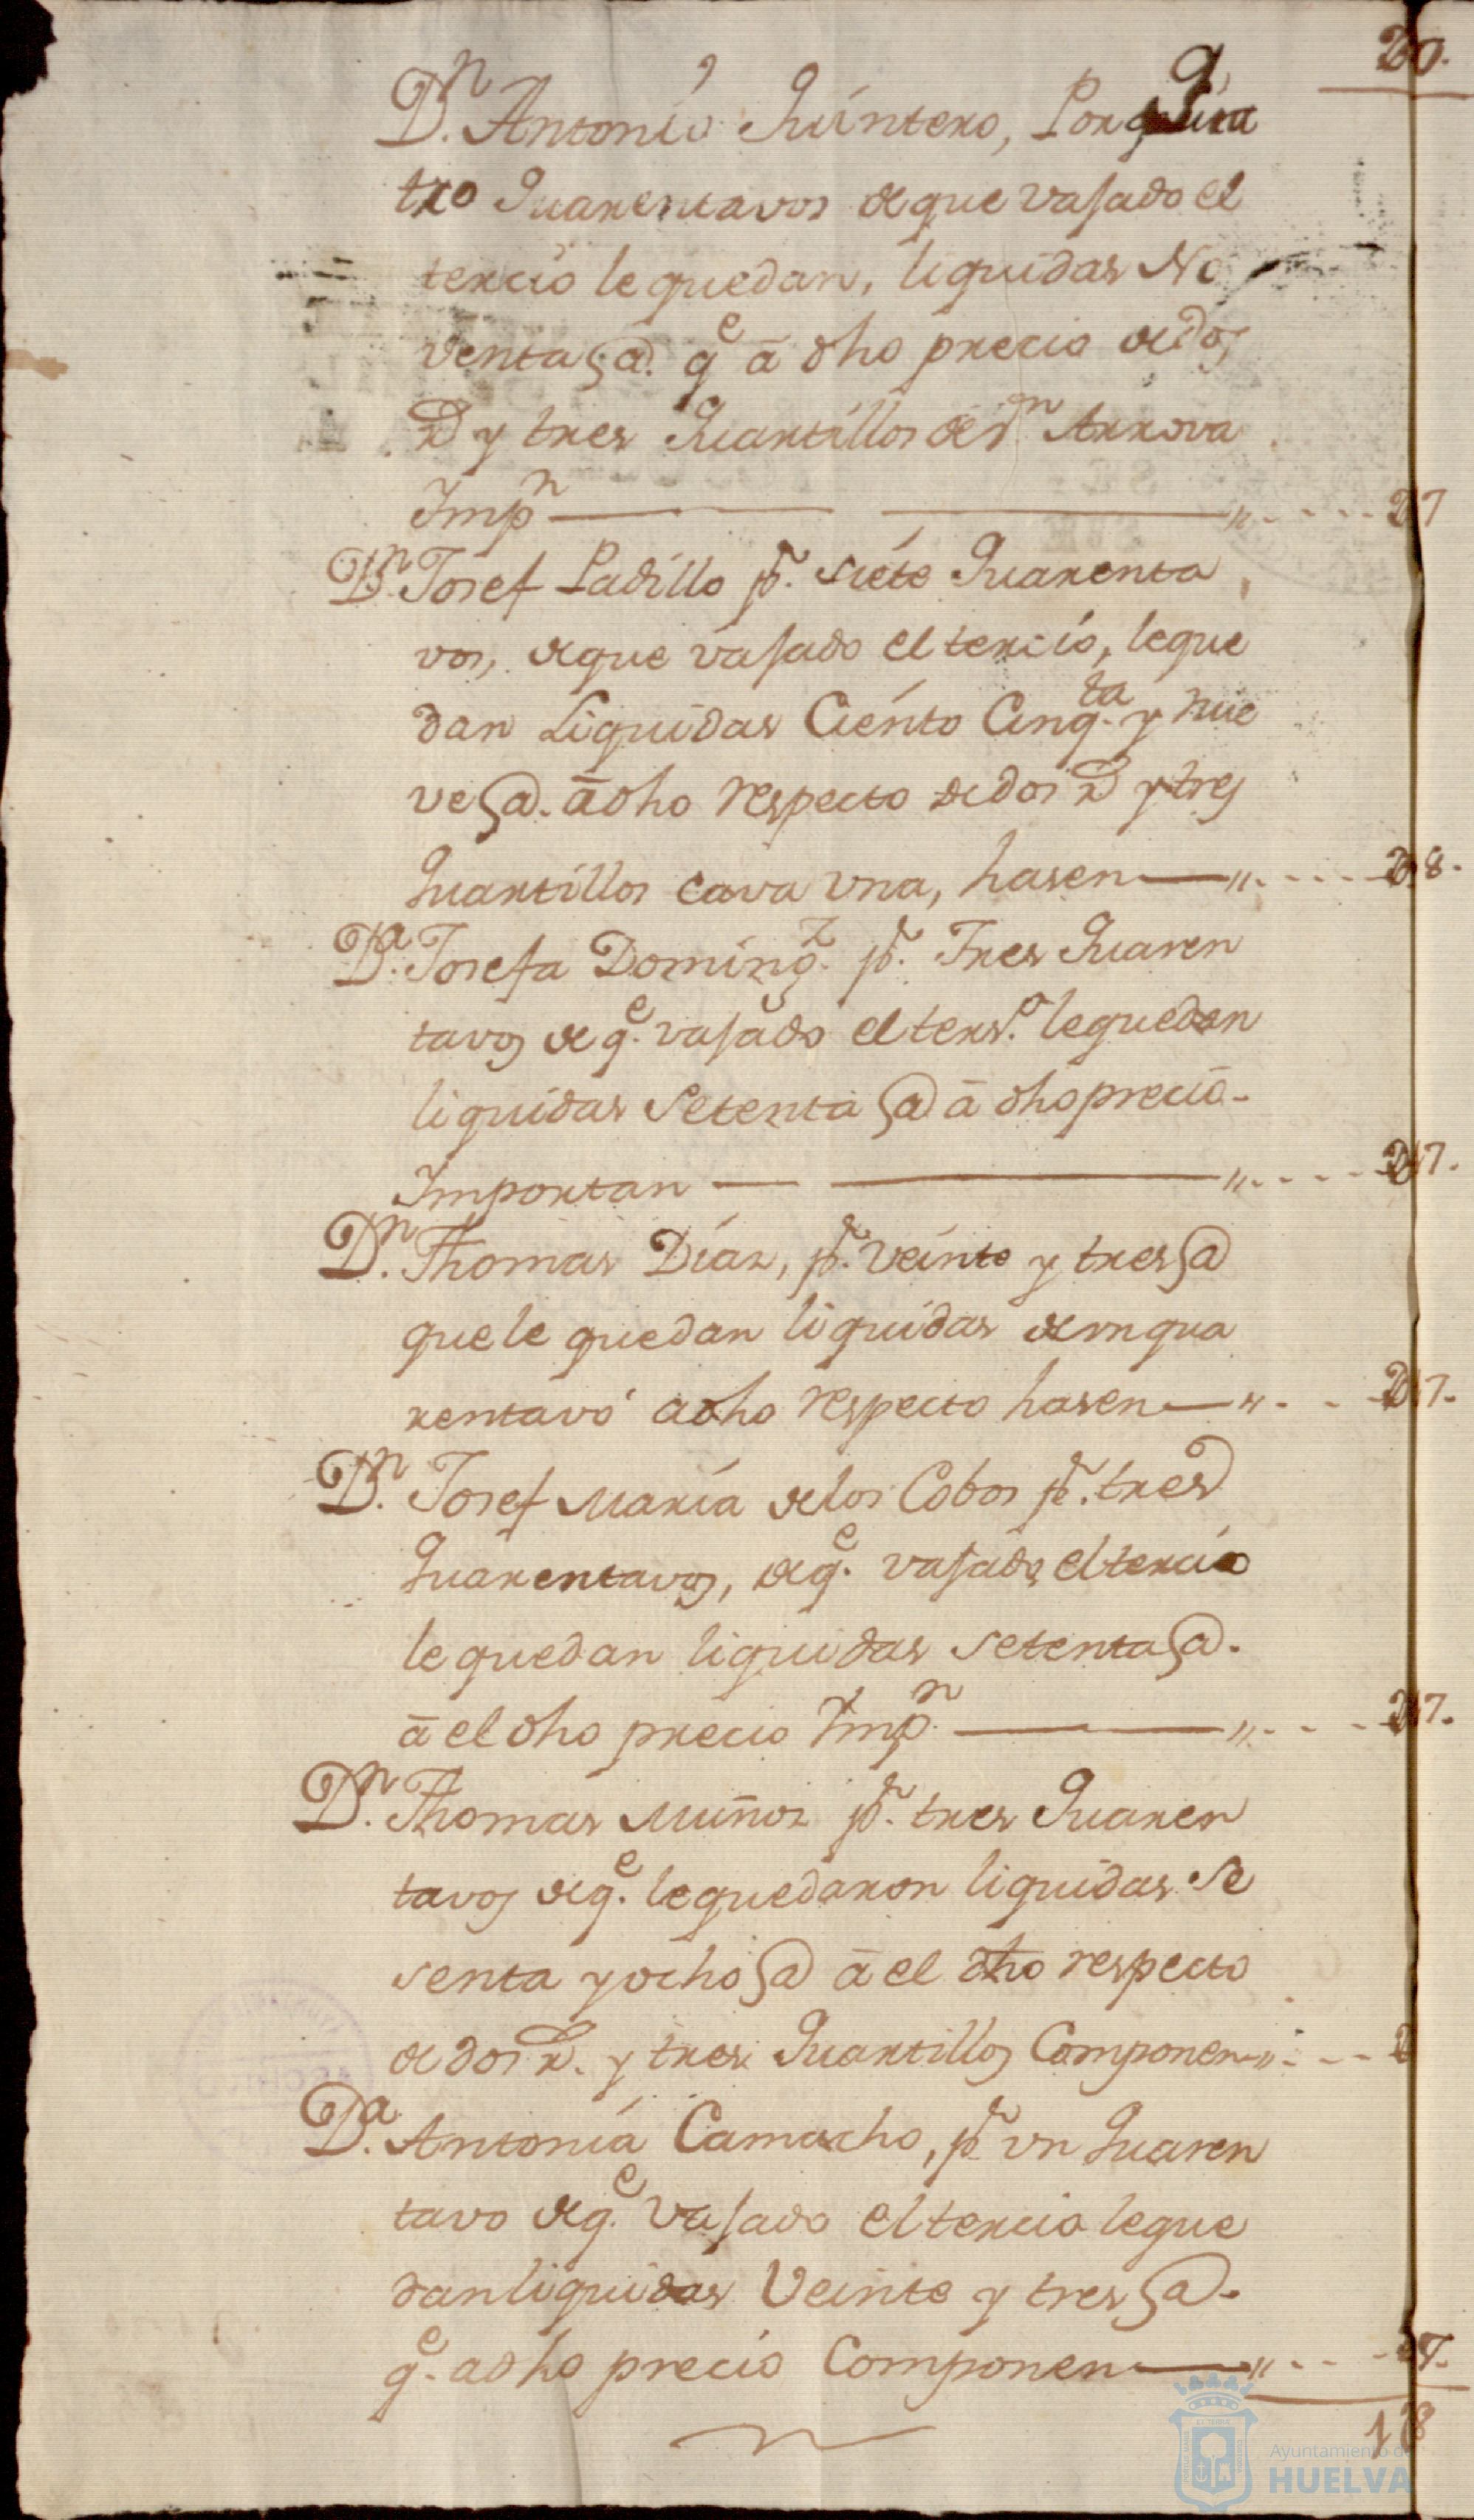 Dn. Antonio Quintero, Por qua
tro Quarentavos de que vajado el
tercio le quedan, liquidas No
venta @. qe â dho precio de dos
R y tres Quartillos de vn Arrova
Impn
Dn Josef Padillo pr. siete Quarenta
vos, de que vajado el tercio, le que
dan Liquidas Ciento Cinqta. y nue
ve @. â dho respecto de dos R y tres
Quartillos cava vna, hasen
Da. Josefa Domingz. pr. Tres Quaren
tavos de qe. vajado el terso. le quedan
liquidas Setenta @ â dho precio
Importan
Dn. Thomas Diaz, pr. Veinte y tres @
que le quedan liquidas de vn qua
rentavo a dho respecto hasen
Dn. Josef Maria de los Cobos pr. tres
Quarentavos, de qe. vajado el tercio
le quedan liquidas setenta @.
â el dho precio Impn.
Dn. Thomas Muñoz pr. tres Quaren
tavos de qe. le quedaron liquidas se
senta y ocho @ â el dho respecto
de dos R. y tres Quartillos Componen
Da. Antonia Camacho, pr vn Quaren
tavo de qe. Vajado el tercio le que
dan liquidas Veinte y tres @.
qe. a dho precio Componen
Ayuntamiento de
HUELVA